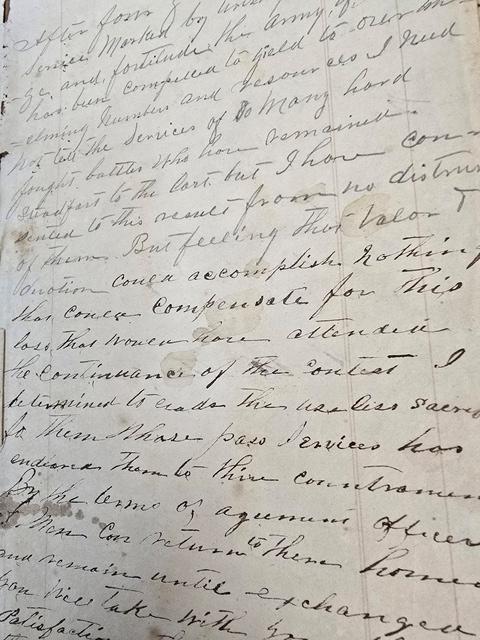 After four
Service Marked by
ge and, fortitude the Army, of
has been compelled to yeald to over
elming numbers and resources I need
not tell the Services of So Many hard
fought battles who have remained
steadfast to the last. but I have con-
sented to this result from no distrus
of them. But feeling that Valor
devotion could accomplish Nothing
that could compensate for this
loss that would have attended
the continuance of the contest I
determined to evade the useless sacri
fo them whose pass Services has
endeared them to thire countrymen
By the terms of agement officer
Men Can return to there homes
and remain until exchanged
You Will take with you
Satisfaction